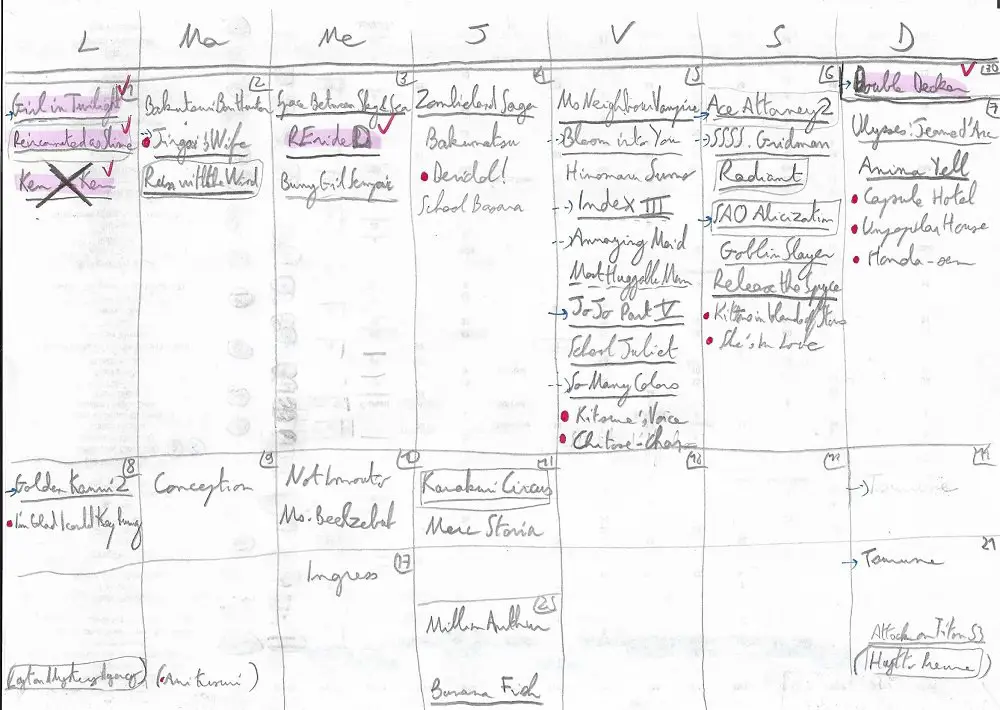 L Ma Me J V S D
1
Girl in Twilight
Reincarnated as Slime
Ken Ken
2
Bakutsuri Bar Hunter
Jingai's Wife
Run with the Wind
3
Space Between Sky & Sea
RErideD
Bunny Girl Senpai
4
Zombieland Saga
Bakumatsu
Devidol!
School Basara
5
Ms Neighbour Vampire
Bloom into You
Hinomaru Sumo
Index III
Annoying Maid
Most Huggable Man
JoJo Part V
School Juliet
So Many Colors
Kitsune's Voice
Chitose-chan
6
Ace Attorney 2
SSSS. Gridman
Radiant
SAO Alicization
Goblin Slayer
Release the Spyce
She's In Love
30
Double Decker
7
Ulysses: Jeanne d'Arc
Anima Yell
Capsule Hotel
Unpopular House
Honda-san
8
Golden Kamui 2
I'm Glad I could Keep
9
Conception
10
Ms. Beelzebub
11
Karakuri Circus
Merc Storia
17
Ingress
21
Tsurune
25
Million Arthur
Banana Fish
Attack on Titan S3